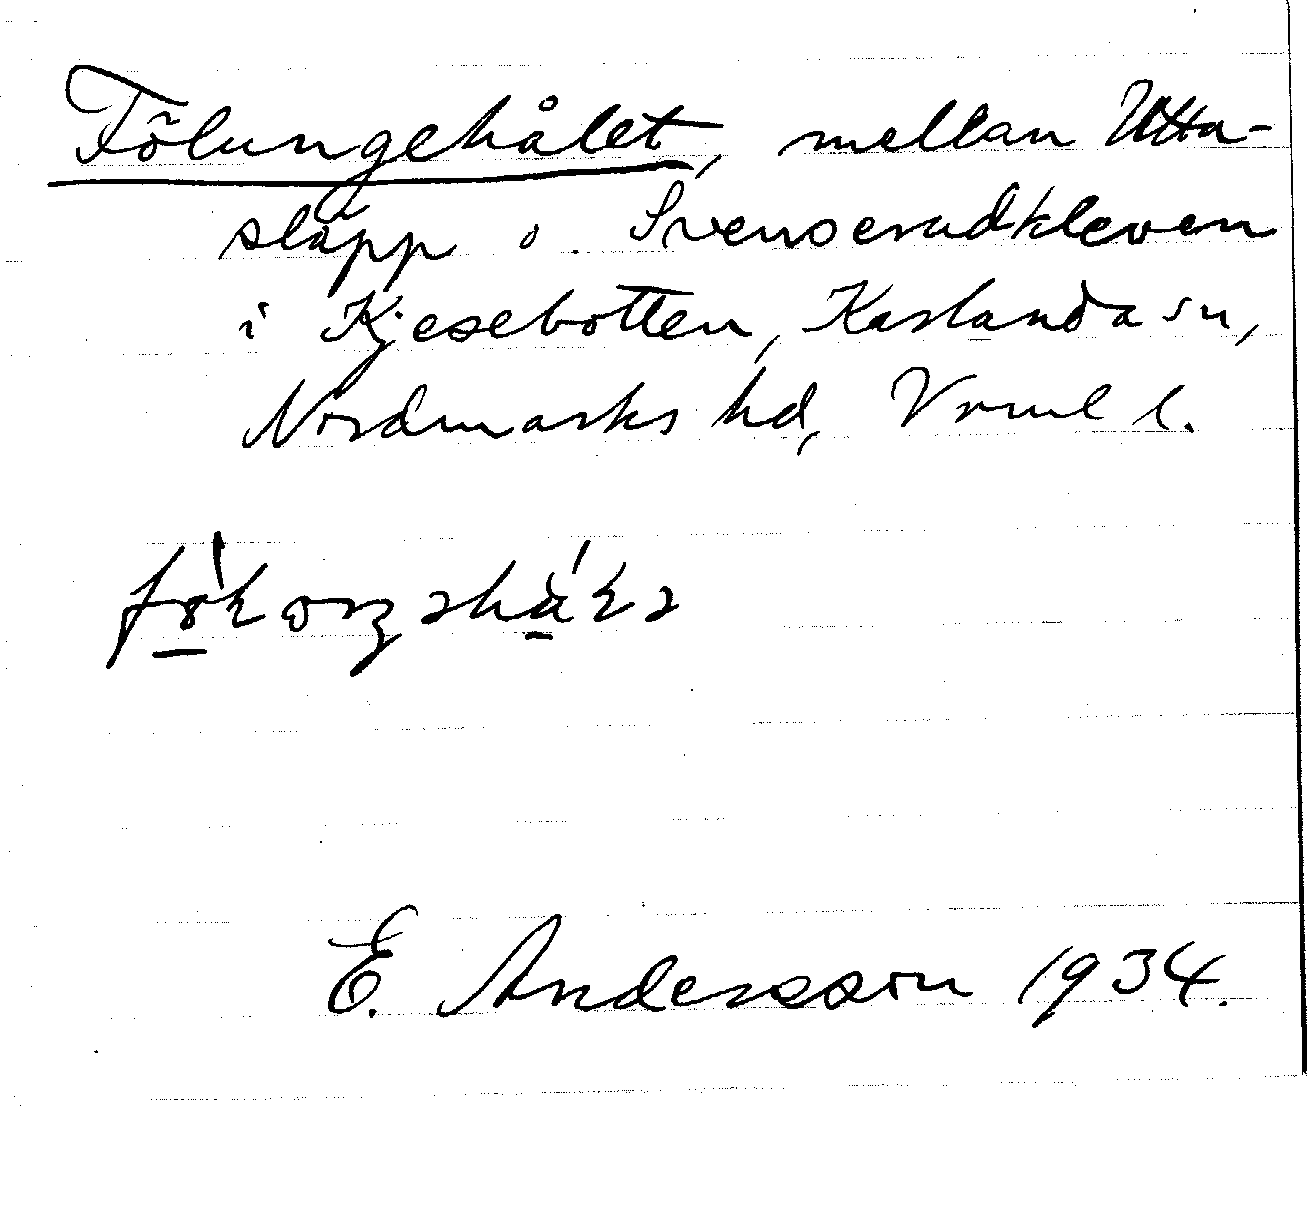 Fölungehålet, mellan Utta-
släpp o. Svenserudkleven
i Kjesebotten, Karlanda sn,
Nordmarks hd, Vrml l.
E. Andersson 1934.